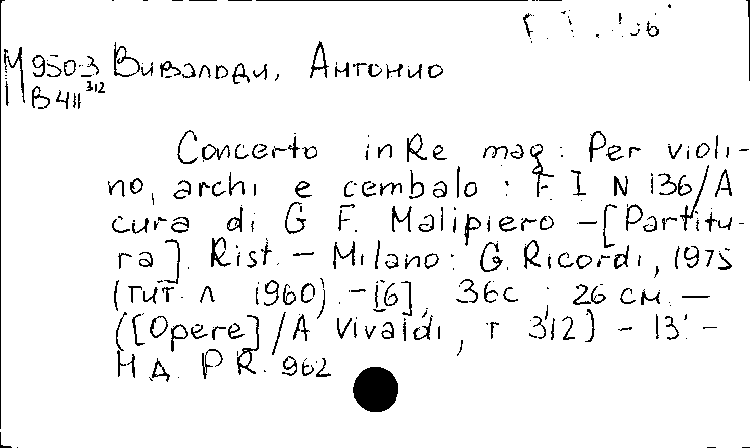 М950-3 Вивальди, Антонио
В411 312
Concerto in Re mag: Per violi-
no, archi e cembalo : F. I N 136/A
cura di G F. Malipiero -[Partitu-
ra]. Rist. - Milano: G. Ricordi, 1975
(тит. л 1960). -[6], 36с ; 26 см. —
([Opere]/A Vivaldi, т 312) - 13' -
Н Д. P. R. 962